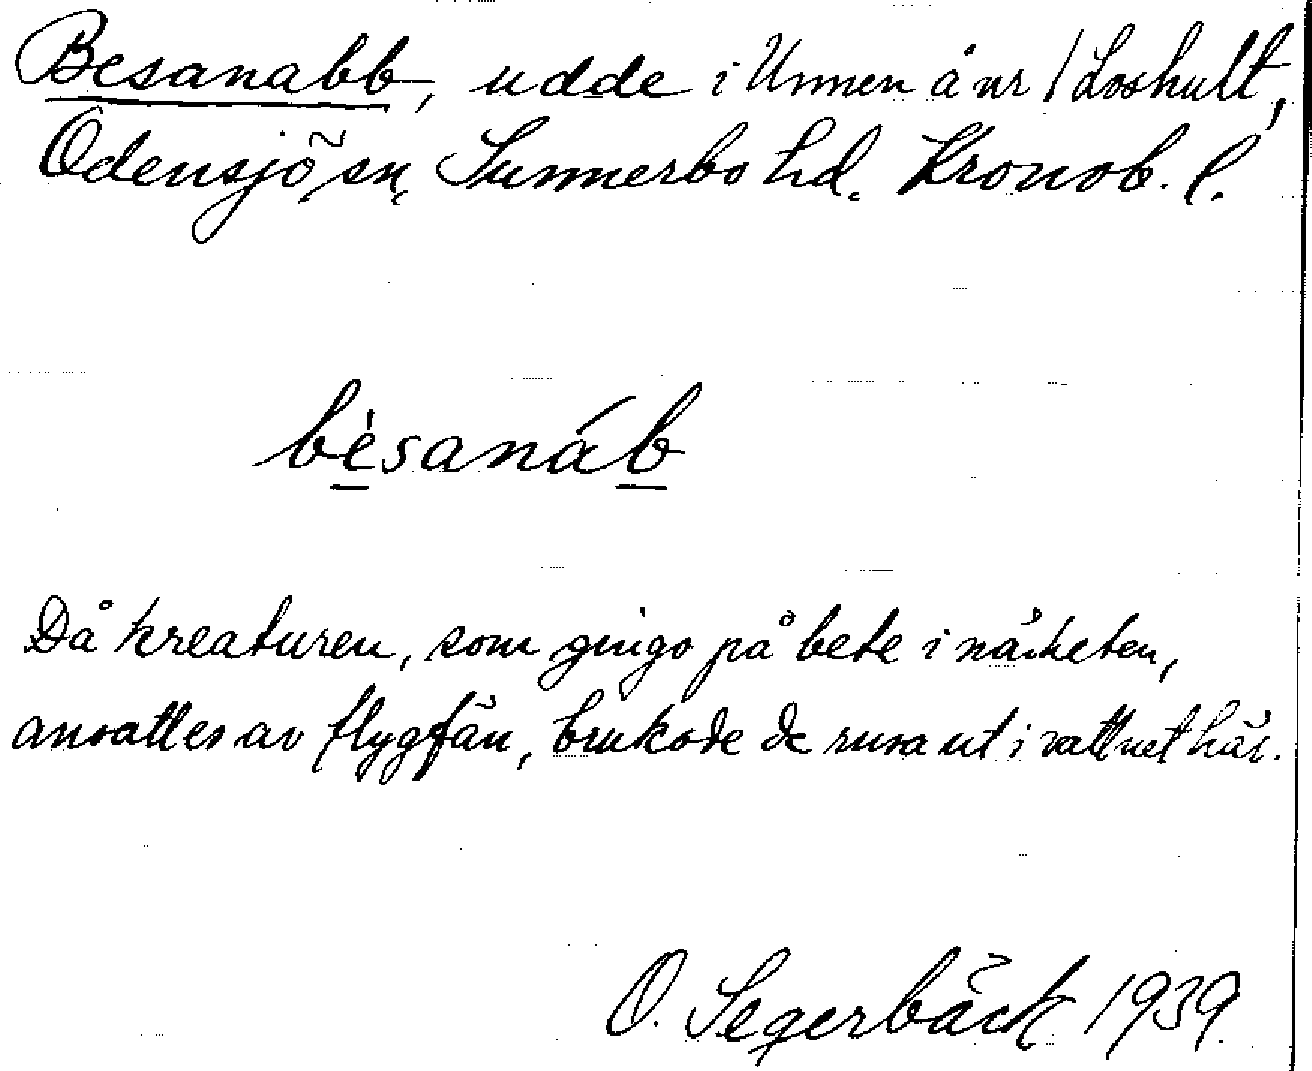 Besanabb, udde i Unnen å nr 1 Loshult,
Odensjö sn, Sunnerbo hd. Kronob. l.
bèsanáb
Då kreaturen, som gingo på bete i närheten,
ansattes av flygfän, brukade de rusa ut i vattnet här.
O. Segerbäck 1939